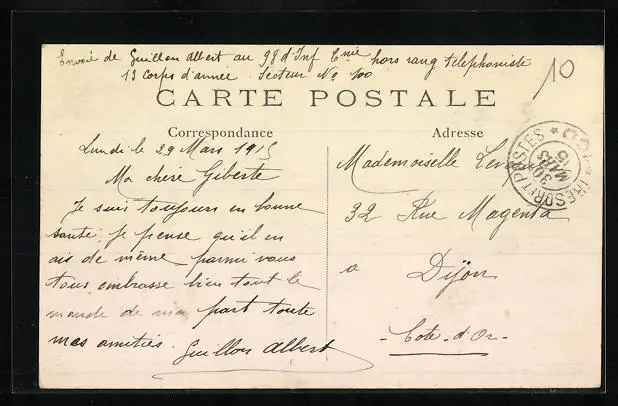 Envoie de Guillon Albert au 98 d'Inf Cnie hors rang telephoniste
13 Corps d'armée. Secteur No 100
10
CARTE POSTALE
Correspondance
Lundi le 29 Mars 1915
Ma chère Giberte
Je suis toujours en bonne
santé je pense qu'il en
ais de même parmi vous
tous embrasse bien tout le
monde de ma part toute
mes amitiés. Guillon Albert
Adresse
Mademoiselle
32 Rue Magenta
a Dijon
- Cote-d'Or -
TRESOR ET POSTES
30
MARS
15